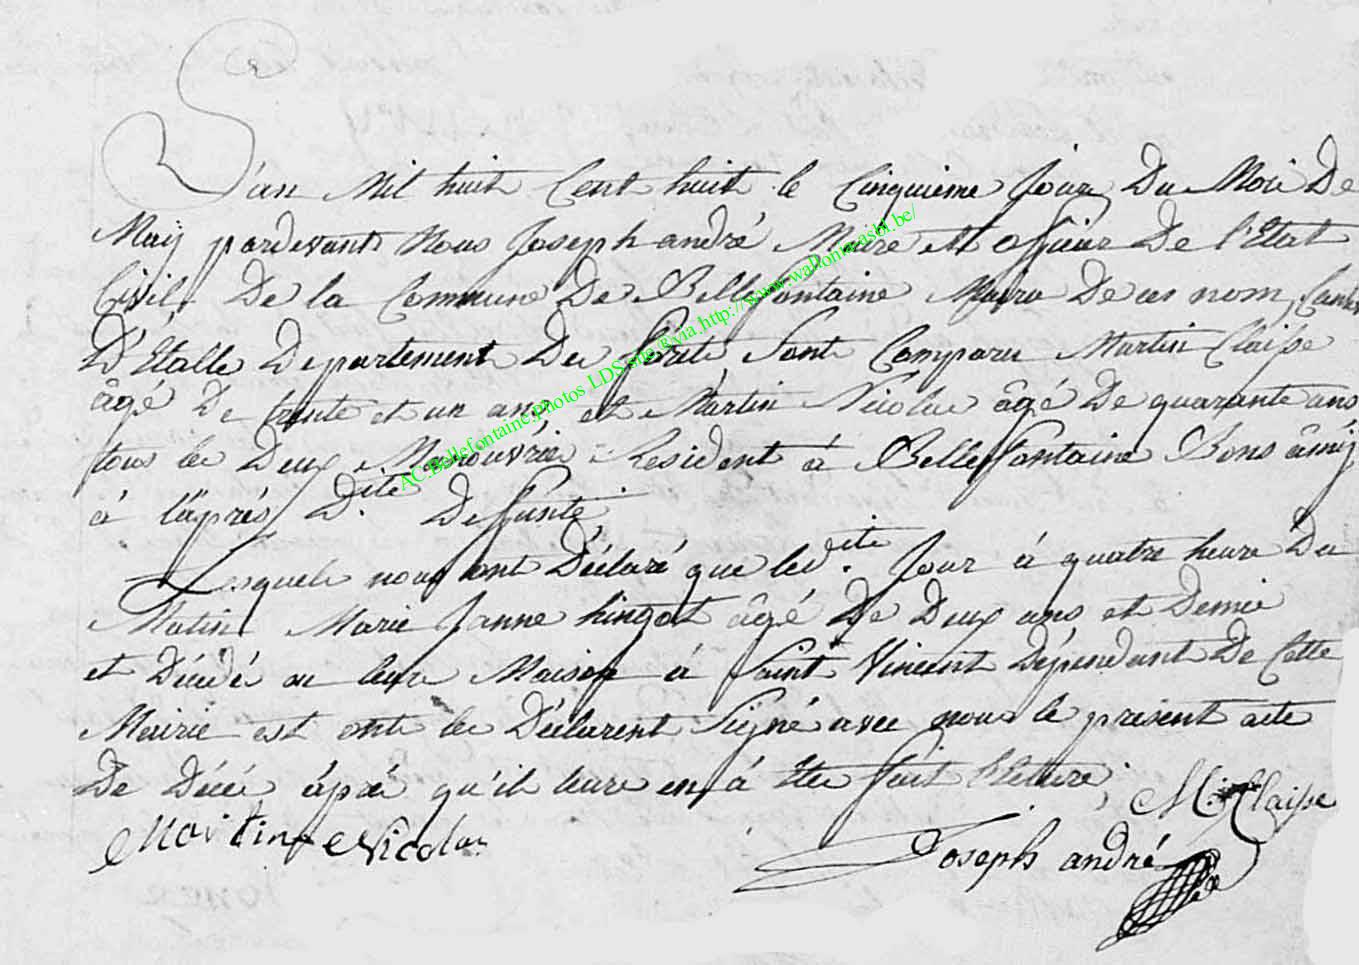 L'an Mil huit Cent huit le Cinquieme Jour Du Moi De
May pardevant Nous Joseph andré Maire et officier De l'Etat
Civil, De la Commune De Bellefontaine Mairie De ce nom, Canton
D'Etalle Departement Des forets Sont Comparu Martin Claisse
âgé De trente et un ans et Martin Nicolas âgé De quarante ans
tous les Deux Manouvrier Resident à Bellefontaine Bons âmij
à l'après D.ite Deffunte,
Lesquels nous ont Déclaré que led.ite Jour à quatre heure Du
Matin Marie Janne hingot âgé De Deux ans et Demie
et Décédé au leur Maison à Saint Vincent Dépendant De Cette
Mairie est ont les Déclarent Signé avec nous le présent acte
De Décé âpré qu'il leure en à Ete fait Lecture,
M. Claisse
Martin Nicolas
Joseph andré
AC.Bellefontaine,photos LDS,site,®,via,http://www.wallonia-asbl.be/